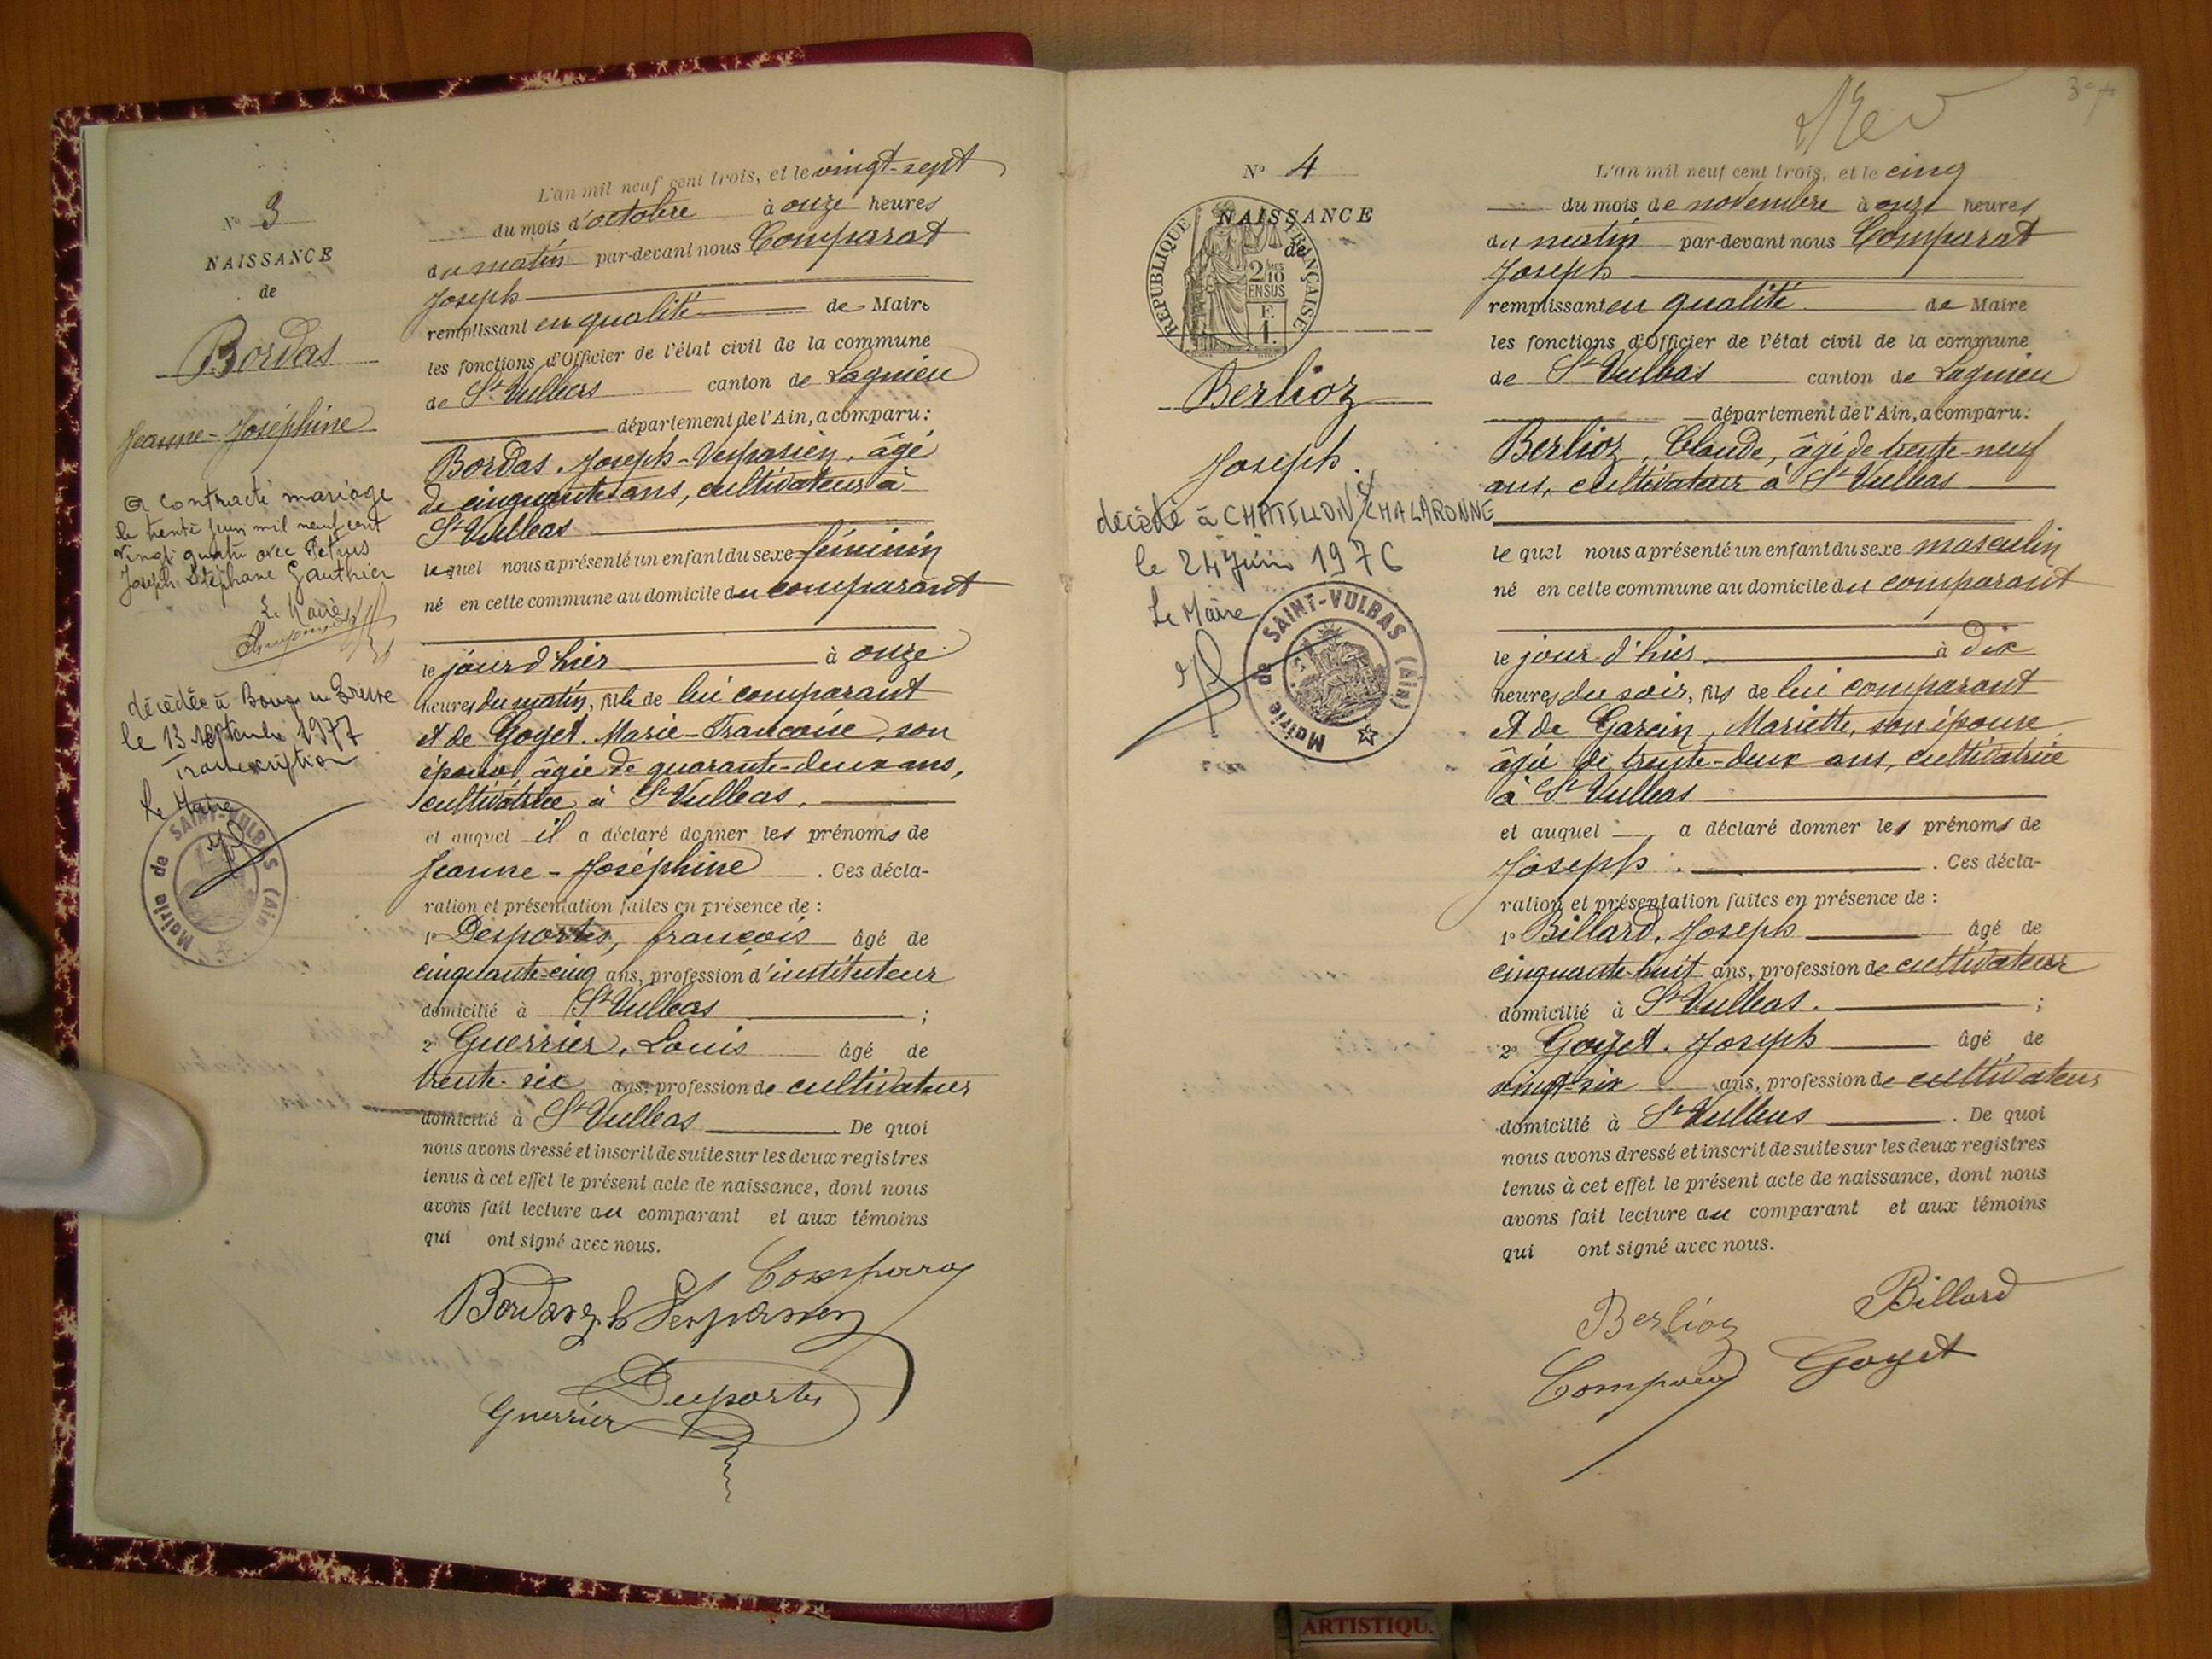 N° 3
NAISSANCE
de
Bordas
Jeanne-Joséphine
a contracté mariage
le trente juin mil neuf cent
vingt quatre avec Petrus
Joseph Stéphane Gauthier
Le Maire
décédée à Bourg en Bresse
le 13 septembre 1977
Transcription
Le Maire
Mairie de SAINT-VULBAS (Ain)
L'an mil neuf cent trois, et le vingt-sept
du mois d'octobre à onze heures
du matin par-devant nous Comparat
Joseph
remplissant en qualité de Maire
les fonctions d'Officier de l'état civil de la commune
de St Vulbas canton de Lagnieu
département de l'Ain, a comparu:
Bordas, Joseph-Vespasien, âgé
de cinquante ans, cultivateur à
St Vulbas
lequel nous a présenté un enfant du sexe féminin
né en cette commune au domicile du comparant
le jour d'hier à onze
heures du matin, fille de lui comparant
et de Goyet, Marie-Françoise, son
épouse, âgée de quarante-deux ans,
cultivatrice à St Vulbas.
et auquel il a déclaré donner les prénoms de
Jeanne-Joséphine. Ces décla-
ration et présentation faites en présence de :
1° Desportes, françois âgé de
cinquante-cinq ans, profession d'instituteur
domicilié à St Vulbas ;
2° Guerrier, Louis âgé de
trente-six ans, profession de cultivateur
domicilié à St Vulbas. De quoi
nous avons dressé et inscrit de suite sur les deux registres
tenus à cet effet le présent acte de naissance, dont nous
avons fait lecture au comparant et aux témoins
qui ont signé avec nous.
Comparat
Bordas Vespasien
Desportes
Guerrier
N° 4
NAISSANCE
de
REPUBLIQUE FRANÇAISE
2/10 MES
EN SUS
F.
1.
Berlioz
Joseph.
décédé à CHATILLON s/ CHALARONNE
le 24 Juin 1976
Le Maire
Mairie de SAINT-VULBAS (Ain)
L'an mil neuf cent trois, et le cinq
du mois de novembre à onze heures
du matin par-devant nous Comparat
Joseph
remplissant en qualité de Maire
les fonctions d'Officier de l'état civil de la commune
de St Vulbas canton de Lagnieu
département de l'Ain, a comparu:
Berlioz, Claude, âgé de trente-neuf
ans, cultivateur à St Vulbas
lequel nous a présenté un enfant du sexe masculin
né en cette commune au domicile du comparant
le jour d'hier à dix
heures du soir, fils de lui comparant
et de Garcin, Mariette, son épouse
âgée de trente-deux ans, cultivatrice
à St Vulbas
et auquel a déclaré donner les prénoms de
Joseph. Ces décla-
ration et présentation faites en présence de :
1° Billard, Joseph âgé de
cinquante-huit ans, profession de cultivateur
domicilié à St Vulbas. ;
2° Goyet, Joseph âgé de
vingt-six ans, profession de cultivateur
domicilié à St Vulbas. De quoi
nous avons dressé et inscrit de suite sur les deux registres
tenus à cet effet le présent acte de naissance, dont nous
avons fait lecture au comparant et aux témoins
qui ont signé avec nous.
Berlioz
Billard
Comparat
Goyet
ARTISTIQU